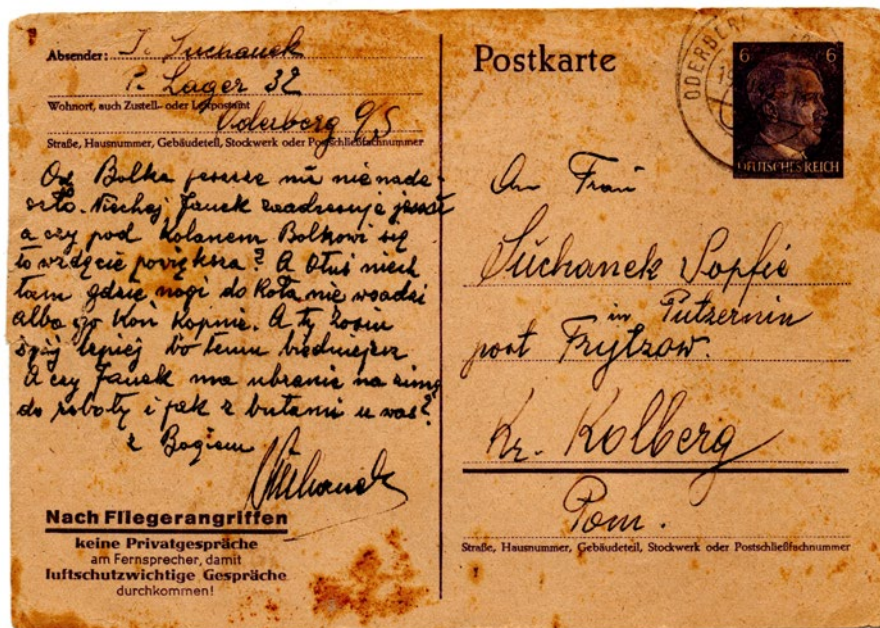 Absender: J. Suchanek
P. Lager 32
Wohnort, auch Zustell- oder Leitpostamt
Oderberg O/S
Straße, Hausnummer, Gebäudeteil, Stockwerk oder Postschließfachnummer
Od Bolka jeszcze nic nie nade-
szło. Niechaj Janek zaadresuje
a czy pod kolanem Bolkowi się
to wzdęcie powiększa? A niech
tam gdzie nogi do koła nie wsadzi
albo go koń kopnie. A ty Zosiu
śpij lepiej bo temu
A czy Janek ma ubranie na zimę
do roboty i jak z butami u was?
z Bogiem
Suchanek
Nach Fliegerangriffen
keine Privatgespräche
am Fernsprecher, damit
luftschutzwichtige Gespräche
durchkommen!
Postkarte
ODERBERG
6 6
DEUTSCHES REICH
An Frau
Suchanek Sopfie
in Putzernin
post Frytzow.
Kr. Kolberg
Pom.
Straße, Hausnummer, Gebäudeteil, Stockwerk oder Postschließfachnummer